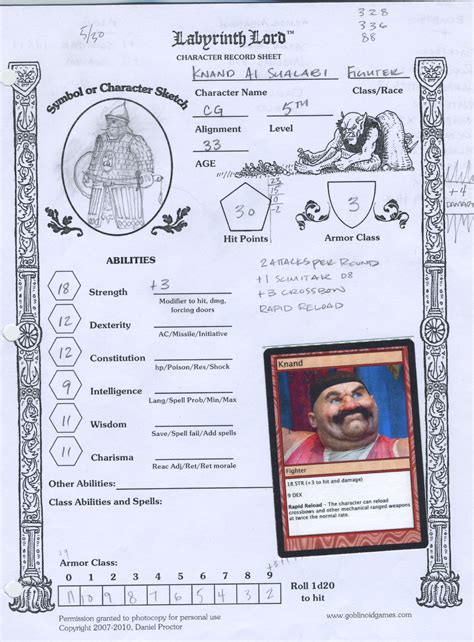 5/30
328
336
88
Labyrinth Lord™
CHARACTER RECORD SHEET
KNAND Al SHALABI
FIGHTER
Character Name
Class/Race
Symbol or Character Sketch
CG
5TH
Alignment
Level
33
AGE
+4
DAMAGE
30
23
15
0
-2
3
Hit Points
Armor Class
ABILITIES
2 ATTACKS PER ROUND
+1 SCIMITAR D8
+3 CROSSBOW
RAPID RELOAD
18 Strength +3
Modifier to hit, dmg,
forcing doors
12 Dexterity
AC/Missile/Initiative
12 Constitution
hp/Poison/Res/Shock
9 Intelligence
Lang/Spell Prob/Min/Max
11 Wisdom
Save/Spell fail/Add spells
11 Charisma
Reac Adj/Ret/Ret morale
Other Abilities:
Class Abilities and Spells:
Knand
Fighter
18 STR (+3 to hit and damage)
9 DEX
Rapid Reload - The character can reload
crossbows and other mechanical ranged weapons
at twice the normal rate.
Armor Class:
0 1 2 3 4 5 6 7 8 9
11 10 9 8 7 6 5 4 3 2
Roll 1d20
to hit
Permission granted to photocopy for personal use
Copyright 2007-2010, Daniel Proctor
www.goblinoidgames.com